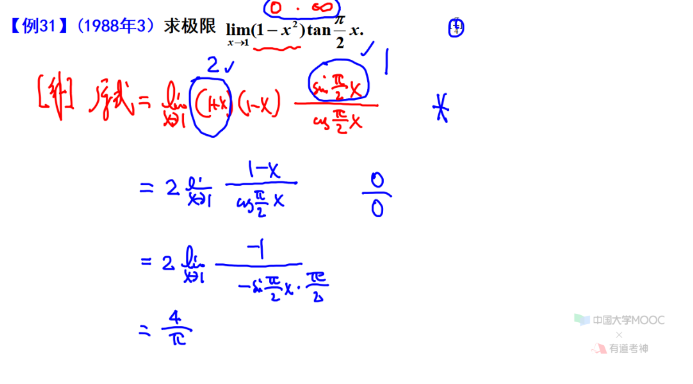 0 · ∞
【例31】(1988年3) 求极限 lim_{x→1}(1−x²)tan π/2 x.
2 ✓ ✓ 1
[解] 原式 = lim_{x→1} (1+x)(1−x) sin π/2 x / cos π/2 x
= 2 lim_{x→1} (1−x) / (cos π/2 x) 0/0
= 2 lim_{x→1} −1 / (−sin π/2 x · π/2)
= 4/π
中国大学MOOC
×
有道考神